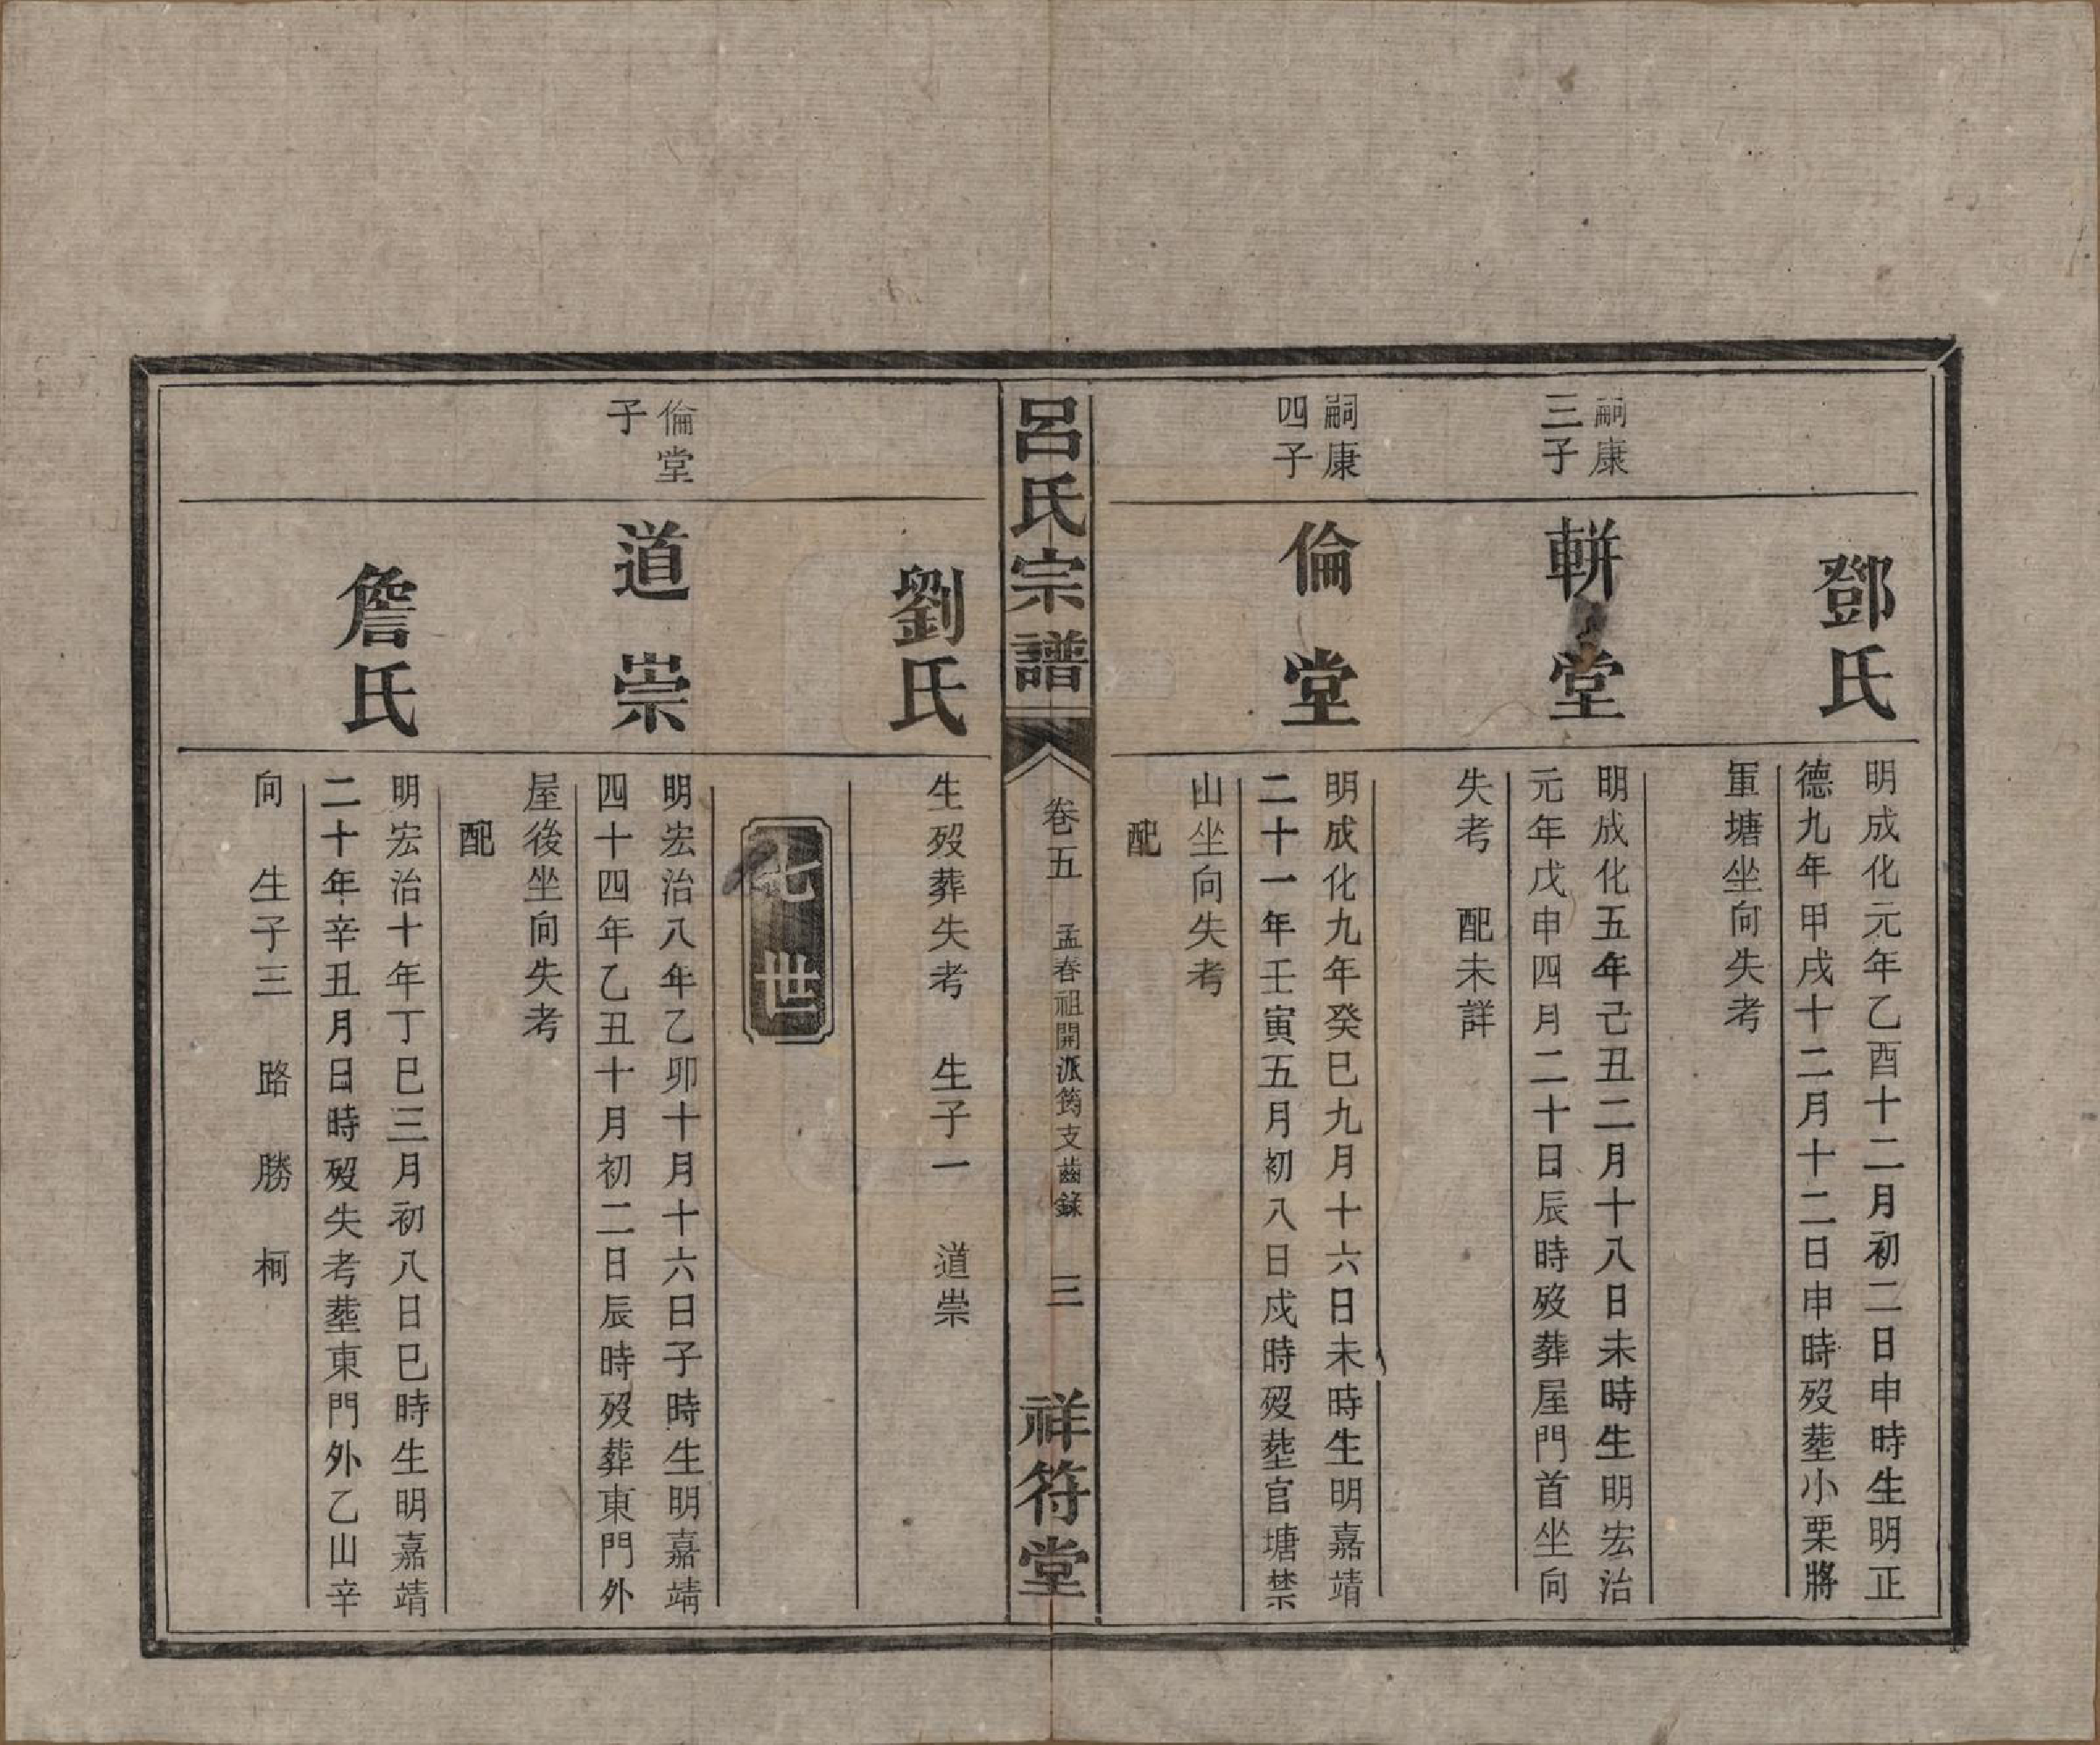 鄧氏
明成化元年乙酉十二月初二日申時生明正
德九年甲戌十二月十二日申時歿塟小栗將
軍塘坐向失考
嗣康
三子
輧堂
明成化五年己丑二月十八日未時生明宏治
元年戊申四月二十日辰時歿葬屋門首坐向
失考 配未詳
嗣康
四子
倫堂
明成化九年癸巳九月十六日未時生明嘉靖
二十一年壬寅五月初八日戌時歿塟官塘禁
山坐向失考
配
呂氏宗譜 卷五 孟春祖開派筠支齒錄 三 祥符堂
劉氏
生歿葬失考 生子一 道崇
七世
倫堂
子
道崇
明宏治八年乙卯十月十六日子時生明嘉靖
四十四年乙丑十月初二日辰時歿葬東門外
屋後坐向失考
配
詹氏
明宏治十年丁巳三月初八日巳時生明嘉靖
二十年辛丑月日時歿失考塟東門外乙山辛
向 生子三 路 勝 柯